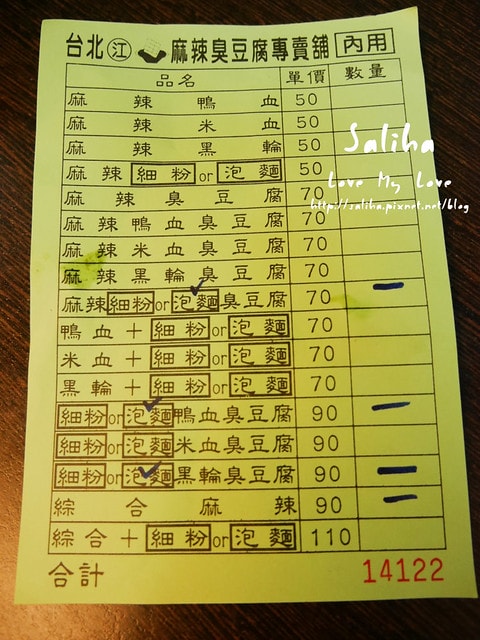 台北江 麻辣臭豆腐專賣舖 內用
品名 單價 數量
麻辣鴨血 50
麻辣米血 50
麻辣黑輪 50
麻辣細粉or泡麵 50
麻辣臭豆腐 70
麻辣鴨血臭豆腐 70
麻辣米血臭豆腐 70
麻辣黑輪臭豆腐 70
麻辣細粉or泡麵臭豆腐 70 一
鴨血+細粉or泡麵 70
米血+細粉or泡麵 70
黑輪+細粉or泡麵 70
細粉or泡麵鴨血臭豆腐 90 一
細粉or泡麵米血臭豆腐 90
細粉or泡麵黑輪臭豆腐 90 一
綜合麻辣 90 一
綜合+細粉or泡麵 110
合計 14122
Saliha
Love My Love
http://saliha.pixnet.net/blog